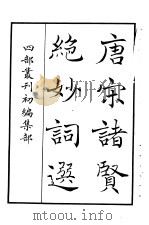 唐宋諸賢
絕妙詞選
四部叢刊初編集部
www.toopoo.com